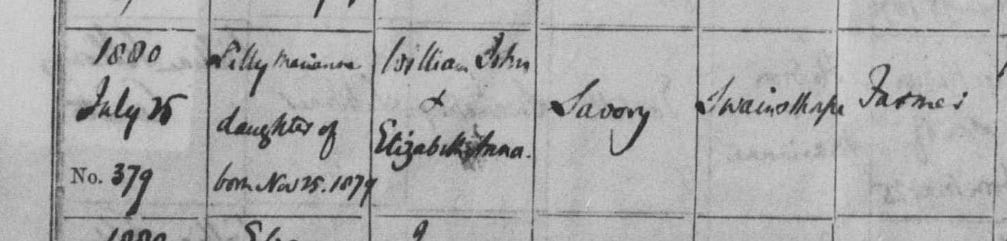 1880
July 25
No. 379
Lilly Marianne
daughter of
born Nov 25. 1879
William John
&
Elizabeth Anna.
Savory
Swainsthorpe
Farmer
1880